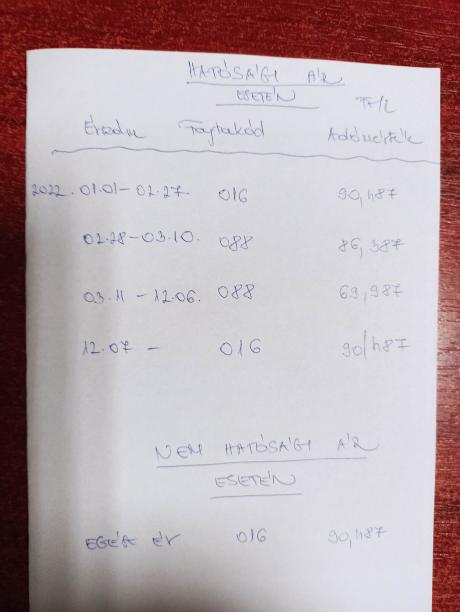 HATÓSÁGI ÁR
ESETÉN
Ft/L
Érzdn Fajtakód Adómérték
2022. 01.01-02.27. 016 90,487
02.28-03.10. 088 86,387
03.11 - 12.06. 088 69,987
12.07 - 016 90,487
NEM HATÓSÁGI ÁR
ESETÉN
EGÉSZ ÉV 016 90,487